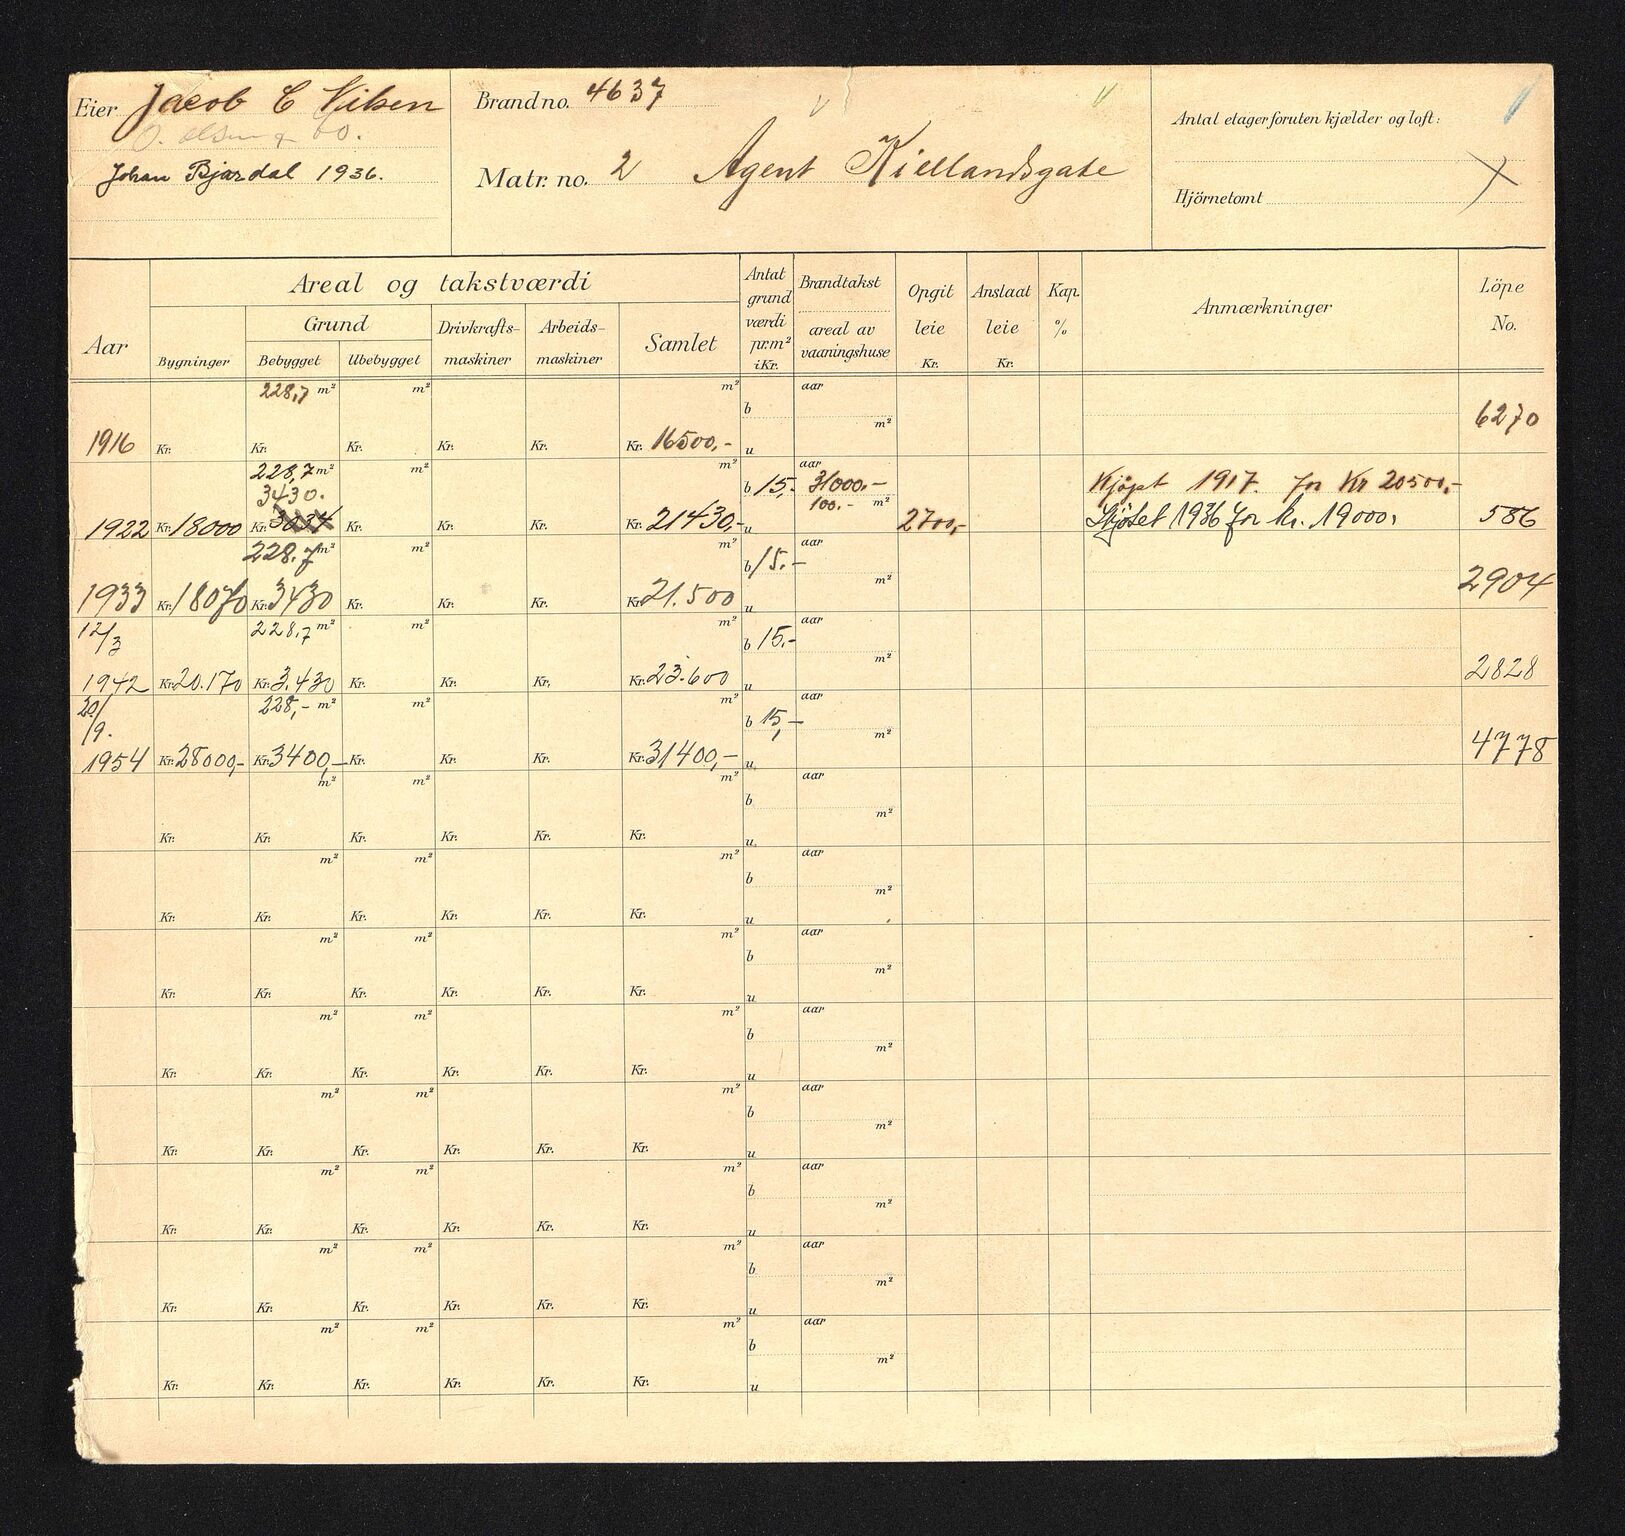 Eier Jacob C Nilsen
Johan Bjårdal 1936.
Brand no. 4637
Matr. no. 2 Agent Kiellandsgate
Antal etager foruten kjælder og loft:
Hjörnetomt
Aar
Areal og takstværdi
Bygninger
Grund
Bebygget
Ubebygget
Drivkrafts-maskiner
Arbeids-maskiner
Samlet
Antat grundværdi pr. m² i Kr.
Brandtakst
areal av vaaningshuse
Opgit leie Kr.
Anslaat leie Kr.
Kap. %
Anmærkninger
Löpe No.
228,7 m² m² m² aar
b m²
1916 Kr. Kr. Kr. Kr. Kr. Kr. 16500,- u 6270
228,7 m² m² m² aar
3430. b 15,- 31000.- Kjøpt 1917. for Kr 20500,-
100.- m²
1922 Kr. 18000 Kr. 3034 Kr. Kr. Kr. Kr. 21430,- u 2700,- Skjøtet 1936 for kr. 19000. 586
228.7 m² m² m² aar
b 15.- m²
1933 Kr. 18070 Kr. 3430 Kr. Kr. Kr. Kr. 21.500 u 2904
12/3 228.7 m² m² m² aar
b 15.- m²
1942 Kr. 20.170 Kr. 3.430 Kr. Kr. Kr. Kr. 23.600 u 2828
20/9. 228,- m² m² m² aar
b 15,- m²
1954 Kr. 28000,- Kr. 3400,- Kr. Kr. Kr. Kr. 31400,- u 4778
m² m² m² aar
b m²
Kr. Kr. Kr. Kr. Kr. Kr. u
m² m² m² aar
b m²
Kr. Kr. Kr. Kr. Kr. Kr. u
m² m² m² aar
b m²
Kr. Kr. Kr. Kr. Kr. Kr. u
m² m² m² aar
b m²
Kr. Kr. Kr. Kr. Kr. Kr. u
m² m² m² aar
b m²
Kr. Kr. Kr. Kr. Kr. Kr. u
m² m² m² aar
b m²
Kr. Kr. Kr. Kr. Kr. Kr. u
m² m² m² aar
b m²
Kr. Kr. Kr. Kr. Kr. Kr. u
m² m² m² aar
b m²
Kr. Kr. Kr. Kr. Kr. Kr. u